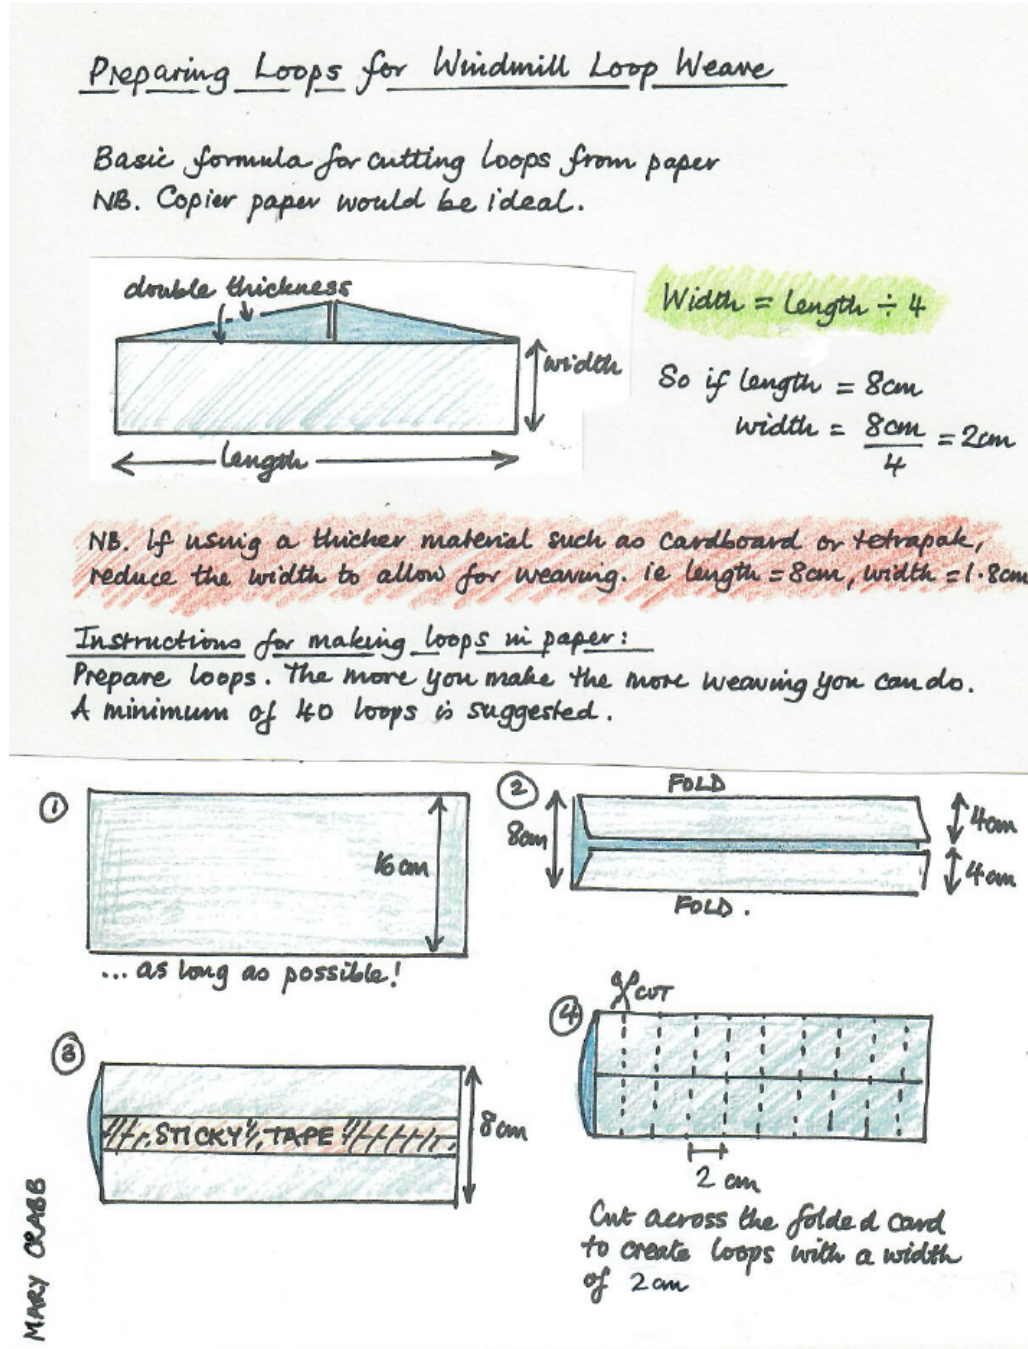 Preparing Loops for Windmill Loop Weave
Basic formula for cutting loops from paper
NB. Copier paper would be ideal.
double thickness
width
length
Width = length ÷ 4
So if length = 8cm
width = 8cm/4 = 2cm
NB. If using a thicker material such as cardboard or tetrapak,
reduce the width to allow for weaving. ie length = 8cm, width = 1.8cm
Instructions for making loops in paper:
Prepare loops. The more you make the more weaving you can do.
A minimum of 40 loops is suggested.
1
16cm
... as long as possible!
2
FOLD
8cm
4cm
4cm
FOLD.
3
STICKY TAPE
8cm
4
CUT
2 cm
Cut across the folded card
to create loops with a width
of 2cm
MARY CRABB